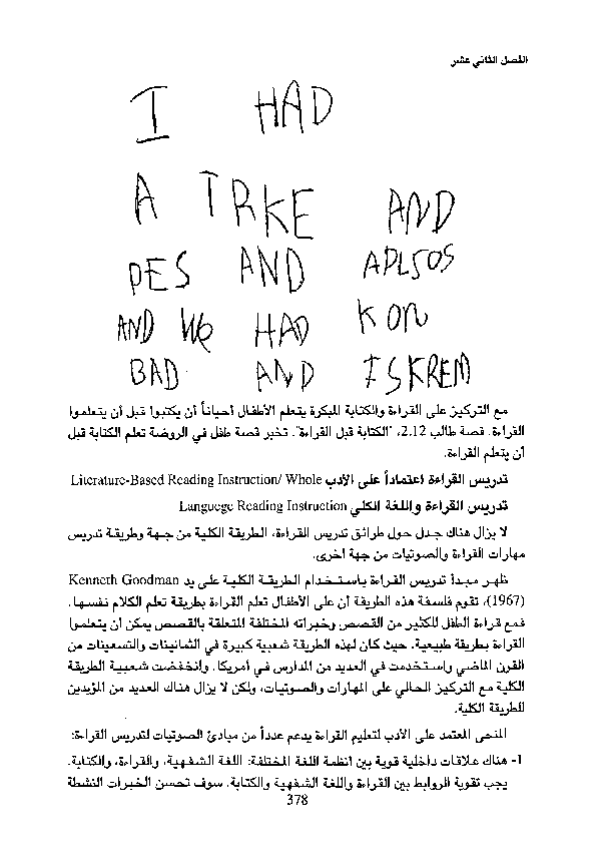 الفصل الثاني عشر
I HAD
A TRKE AND
PES AND APLSOS
AND We HAD KON
BAD AND ISKREM
مع التركيز على القراءة والكتابة المبكرة يتعلم الأطفال أحياناً أن يكتبوا قبل أن يتعلموا
القراءة. قصة طالب 2.12، "الكتابة قبل القراءة". تخبر قصة طفل في الروضة تعلم الكتابة قبل
أن يتعلم القراءة.
تدريس القراءة اعتماداً على الأدب Literature-Based Reading Instruction/ Whole
تدريس القراءة واللغة الكلي Languege Reading Instruction
لا يزال هناك جدل حول طرائق تدريس القراءة، الطريقة الكلية من جهة وطريقة تدريس
مهارات القراءة والصوتيات من جهة اخرى.
ظهر مبدأ تدريس القراءة باستخدام الطريقة الكلية على يد Kenneth Goodman
(1967)، تقوم فلسفة هذه الطريقة أن على الأطفال تعلم القراءة بطريقة تعلم الكلام نفسها.
فمع قراءة الطفل للكثير من القصص وخبراته المختلفة المتعلقة بالقصص يمكن أن يتعلموا
القراءة بطريقة طبيعية. حيث كان لهذه الطريقة شعبية كبيرة في الثمانينات والتسعينات من
القرن الماضي واستخدمت في العديد من المدارس في أمريكا. وانخفضت شعبية الطريقة
الكلية مع التركيز الحالي على المهارات والصوتيات، ولكن لا يزال هناك العديد من المؤيدين
للطريقة الكلية.
المنحى المعتمد على الأدب لتعليم القراءة يدعم عدداً من مبادئ الصوتيات لتدريس القراءة:
1- هناك علاقات داخلية قوية بين انظمة اللغة المختلفة: اللغة الشفهية، والقراءة، والكتابة.
يجب تقوية الروابط بين القراءة واللغة الشفهية والكتابة. سوف تحسن الخبرات النشطة
378